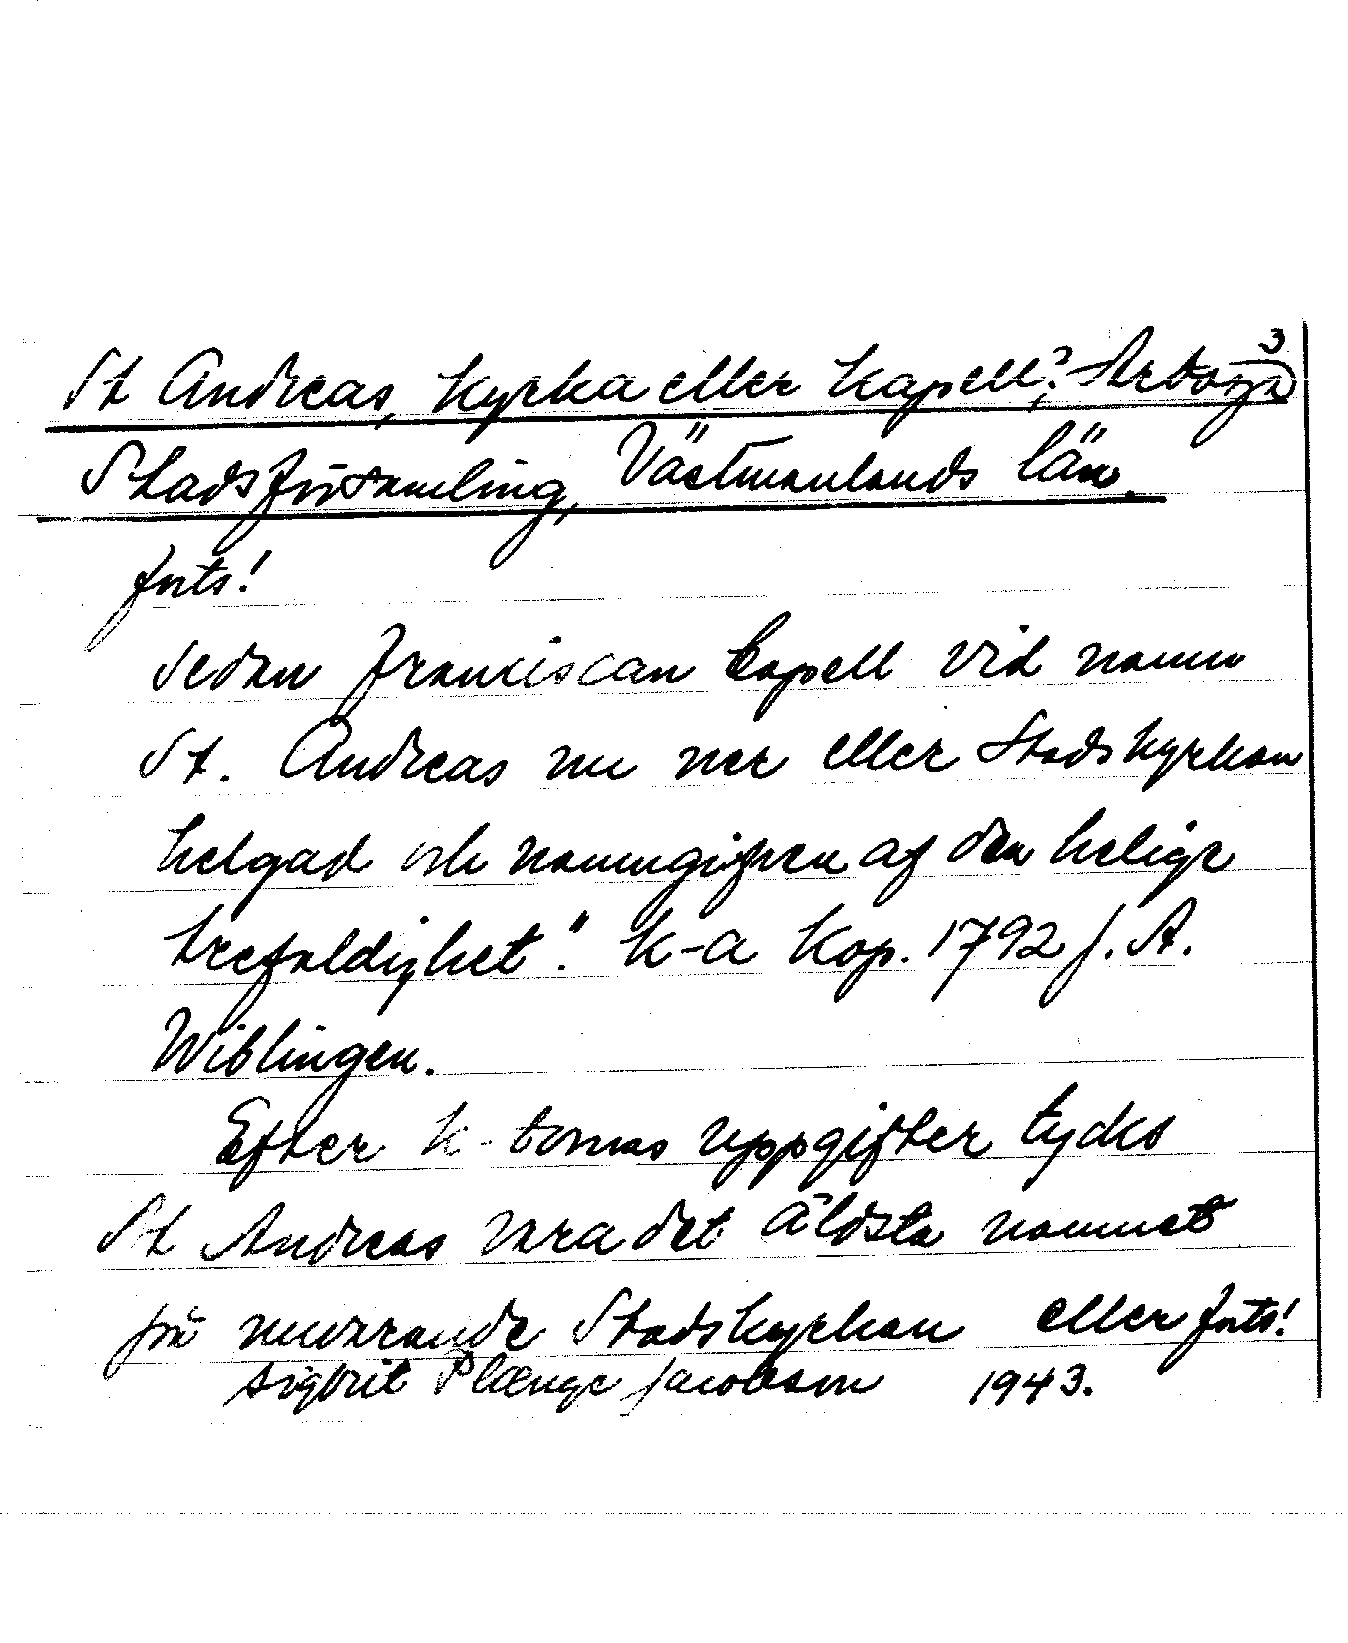 3
St Andreas, kyrka eller kapell?, Arboga
Stadsförsamling, Västmanlands län.
forts!
sedan Franciscan Capell vid namn
St. Andreas nu mer eller Stadskyrkan
helgad och namngifven af den helige
trefaldighet". K-a Kop. 1792 J. A.
Wiblingen.
Efter k- uppgifter tycks
St Andreas vara det äldsta namnet
på nuvarande Stadskyrkan eller forts!
Sigbrit Plænge Jacobson 1943.